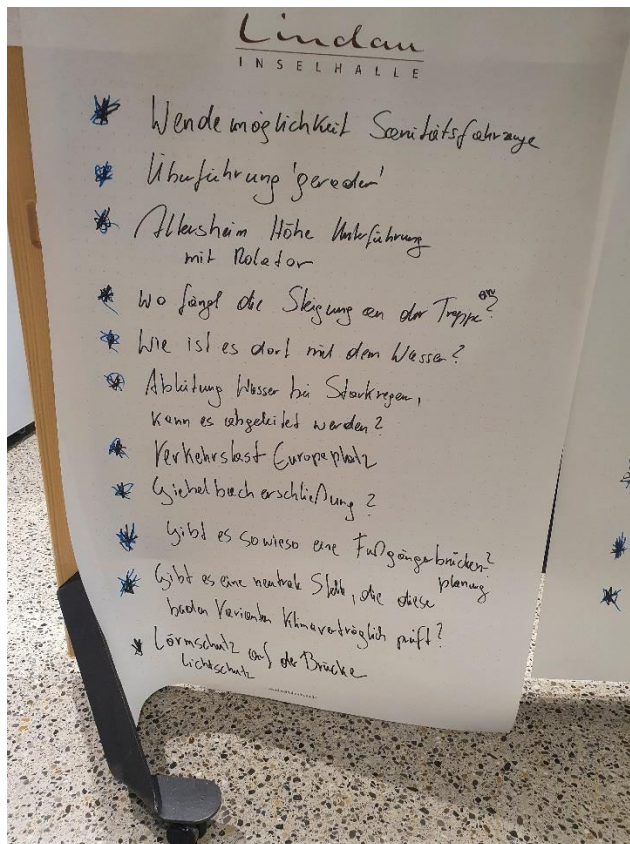 Lindau
INSELHALLE
Wendemöglichkeit Sanitätsfahrzeuge
Überführung 'gerader'
Altersheim Höhe Unterführung
mit Rolator
Wo fängt die Steigung an der Treppe an?
Wie ist es dort mit dem Wasser?
Ableitung Wasser bei Starkregen,
kann es abgeleitet werden?
Verkehrslast Europaplatz
Giebelbacherschließung?
Gibt es sowieso eine Fußgängerbrücken-?
planung
Gibt es eine neutrale Stelle, die diese
beiden Varianten Klimaverträglich prüft?
Lärmschutz auf der Brücke
Lichtschutz